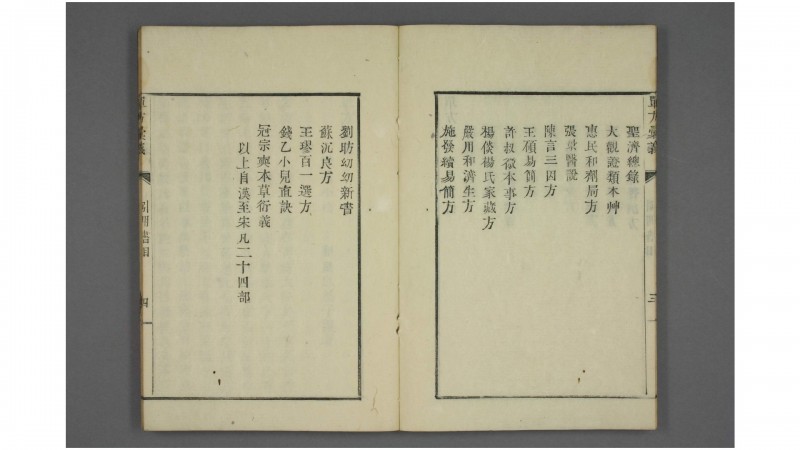 聖濟總錄
大觀證類本艸
惠民和劑局方
張杲醫說
陳言三因方
王碩易簡方
許叔微本事方
楊倓楊氏家藏方
嚴用和濟生方
施發續易簡方
三
劉昉幼幼新書
蘇沉良方
王璆百一選方
錢乙小兒直訣
冦宗奭本草衍義
以上自漢至宋凡二十四部
引用書目
四